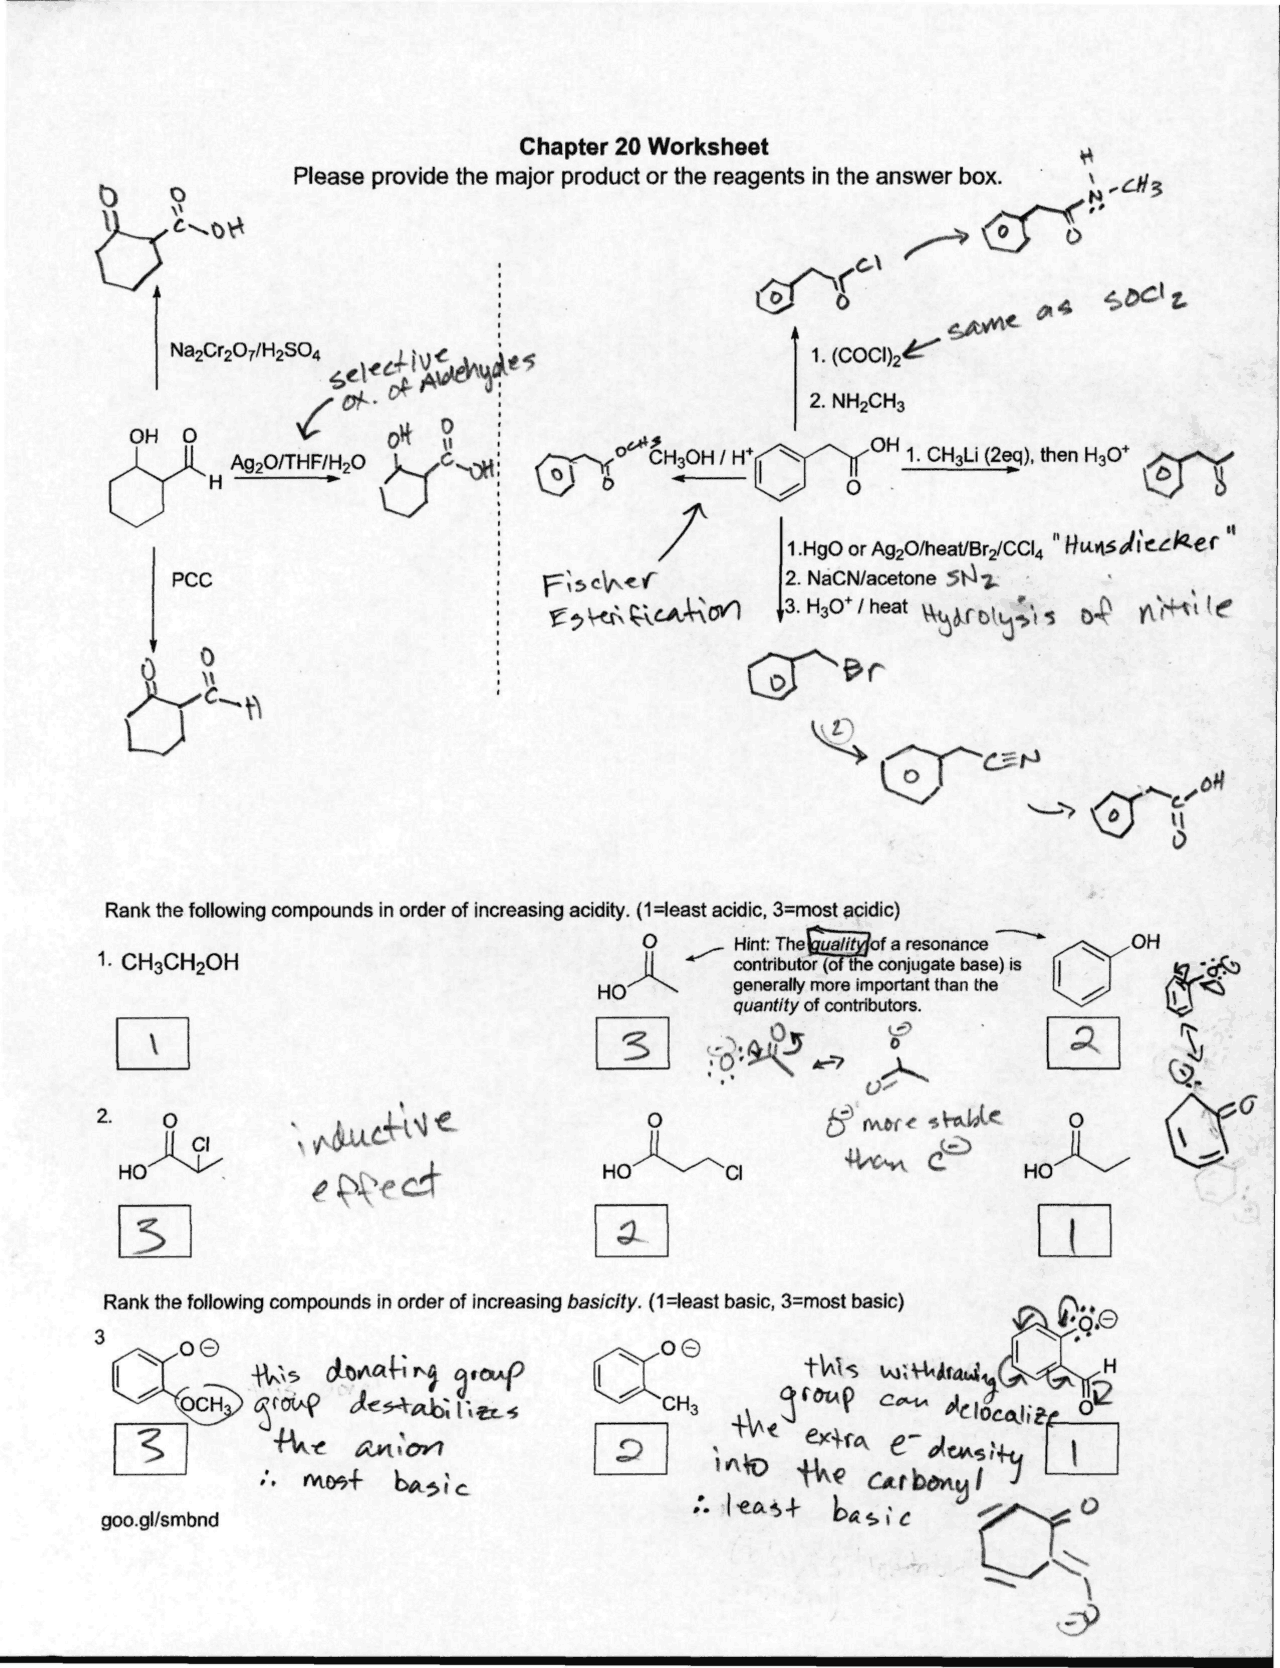 Chapter 20 Worksheet
Please provide the major product or the reagents in the answer box.
O
O
C
OH
Na₂Cr₂O₇/H₂SO₄
selective
ox. of Aldehydes
OH O
H
Ag₂O/THF/H₂O
OH
O
C
OH
PCC
O
O
C
H
H
N
CH3
O
Cl
O
same as SOCl2
1. (COCl)₂
2. NH₂CH₃
OCH3
O
CH₃OH / H⁺
OH
O
1. CH₃Li (2eq), then H₃O⁺
O
Fischer
Esterification
1.HgO or Ag₂O/heat/Br₂/CCl₄ "Hunsdiecker"
2. NaCN/acetone SN2
3. H₃O⁺ / heat Hydrolysis of nitrile
Br
2
C≡N
C
OH
O
Rank the following compounds in order of increasing acidity. (1=least acidic, 3=most acidic)
1. CH₃CH₂OH
O
HO
Hint: The quality of a resonance
contributor (of the conjugate base) is
generally more important than the
quantity of contributors.
OH
1
3
2
O
O
O
O
O⊖ more stable
than C⊖
2.
O
Cl
HO
inductive
effect
O
HO
Cl
O
HO
3
2
1
Rank the following compounds in order of increasing basicity. (1=least basic, 3=most basic)
3
O⊖
OCH₃
this donating group
group destabilizes
the anion
∴ most basic
3
O⊖
CH₃
2
this withdrawing
group can delocalize
the extra e⁻ density
into the carbonyl
∴ least basic
O⊖
H
O
1
O
goo.gl/smbnd